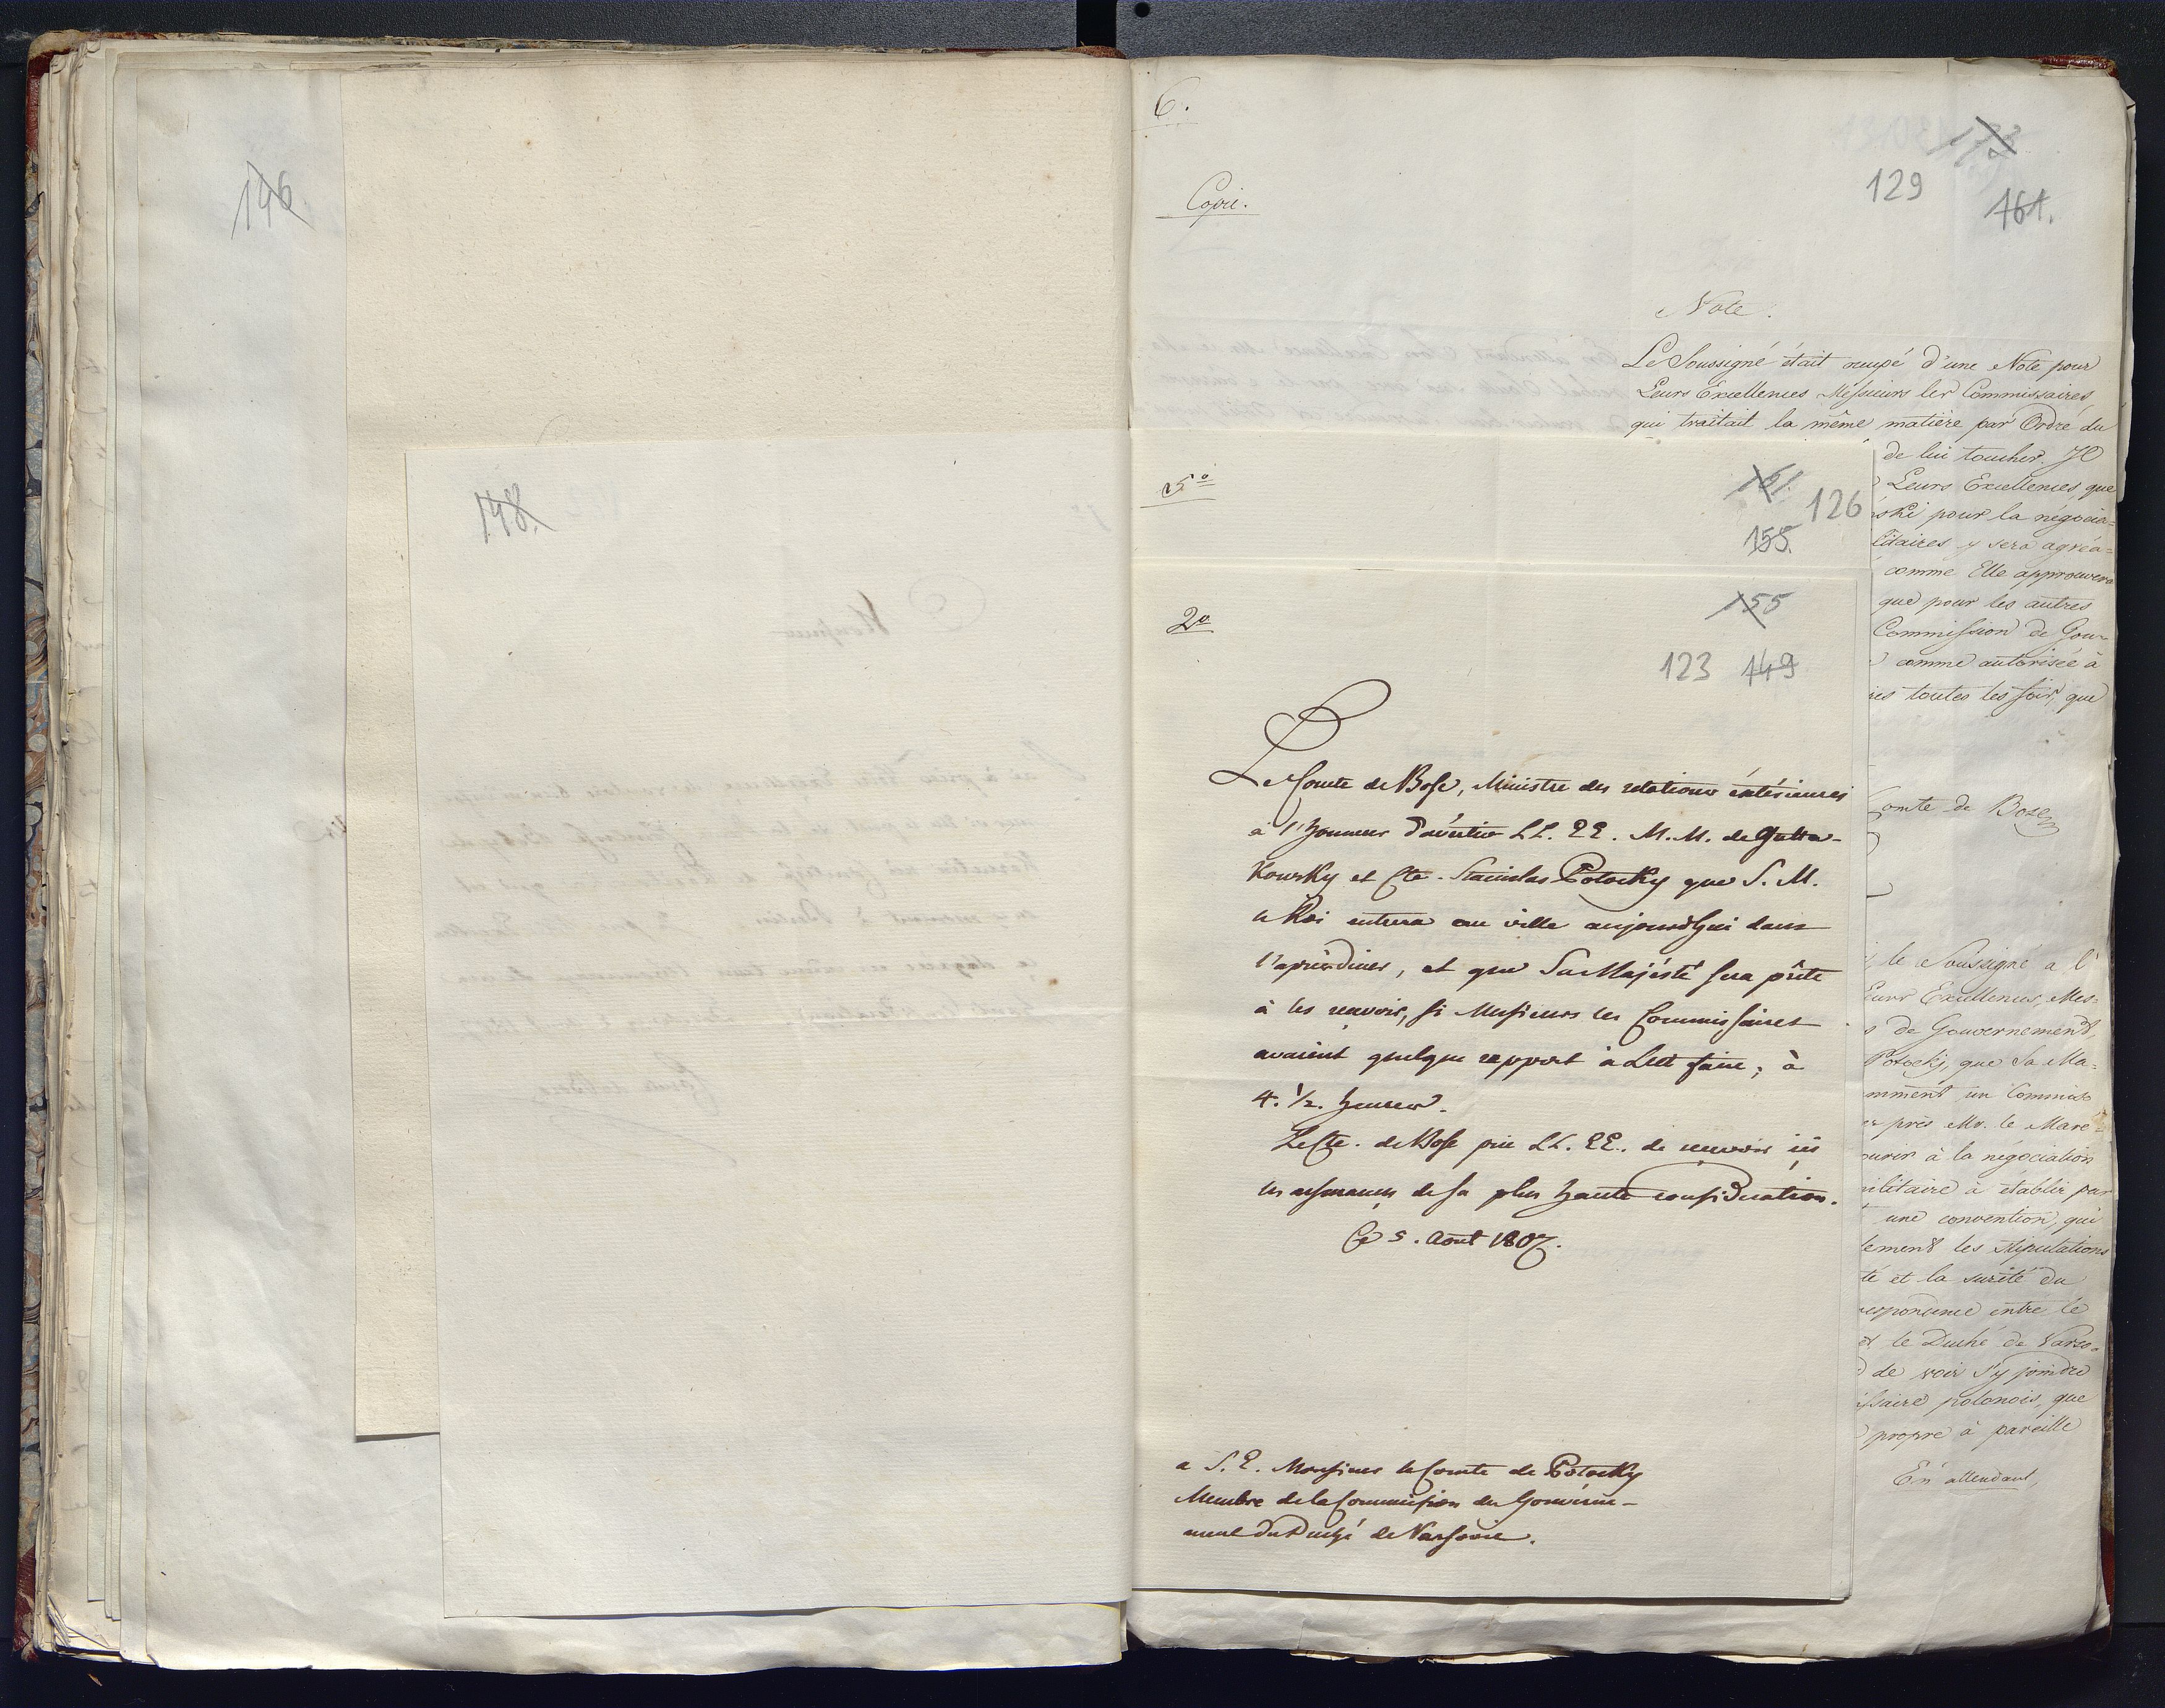 146
148.
6.
Copie.
173
129
161.
Note.
Le Soussigné était occupé d'une Note pour
Leurs Excellences Messieurs les Commissaires,
qui traitait la même matière par Ordre du
de lui toucher. Il
Leurs Excellences, que
pour la négocia=
litaires y sera agréa=
comme Elle approuvera
que pour les autres
Commission de Gou=
comme autorisée à
toutes les fois, que
omte de Bose
le Soussigné a l'
Leurs Excellences, Mes=
de Gouvernement,
Potocki, que Sa Ma=
amment un Commis
près Mr. le Maré=
ourir à la négociation
militaire à établir par
une convention, qui
lement les stipulations
té et la sureté du
respondence entre le
et le Duché de Varso=
de voir s'y joindre
issaire polonois, que
propre à pareille
En attendant,
5º
161.
126
155.
2º
155
123 149
Le Comte de Bose, Ministre des relations éxtérieures
a l'honneur d'avertir LL. EE. M.M. de Gutta-
kowsky et Cte. Stanislas Potocky que S. M.
le Roi entrera en ville aujourd'hui dans
l'aprèsdiner, et que Sa Majésté sera prête
à les recevoir, si Messieurs les Commissaires
avaient quelque rapport à Lui faire, à
4. 1/2. heures.
Le Cte. de Bose prie LL. EE. de recevoir ici
les assurances de sa plus haute considération.
Ce 5. Aout 1807.
a S. E. Monsieur le Comte de Potocky
Membre de la Commission du Gouverne-
ment du Duché de Varsovie.